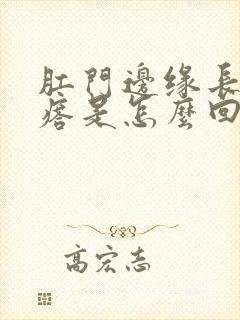 肛門邊缘長
痞是怎麼回
高宏志